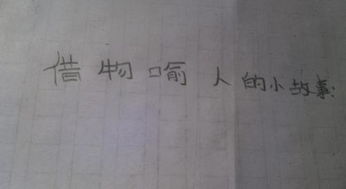 借物喻人的小故事: